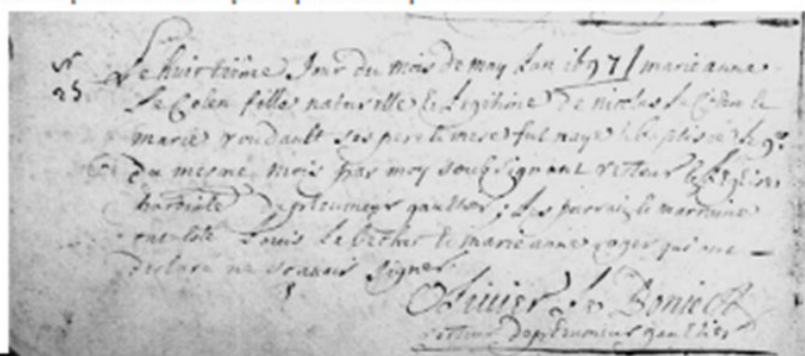 Le huictieme Jour du mois de may Lan 1697 marie anne
Le Colen fille naturelle et Legitime de nicolas Le Colen et
marie roudault ses pere et mere fut naye et baptisee le 9e
du mesme mois par moy soubsignant recteur
de pleumeur gaultier, Les parrain et marraine
ont esté Louis Le et marie anne qui ont
declaré ne scavoir signer
Olivier Le
recteur de pleumeur gaultier